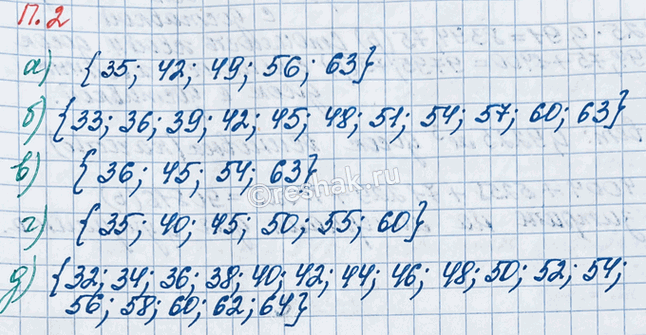 П.2
а) {35; 42; 49; 56; 63}
б) {33; 36; 39; 42; 45; 48; 51; 54; 57; 60; 63}
в) {36; 45; 54; 63}
©reshak.ru
г) {35; 40; 45; 50; 55; 60}
д) {32; 34; 36; 38; 40; 42; 44; 46; 48; 50; 52; 54;
56; 58; 60; 62; 64}